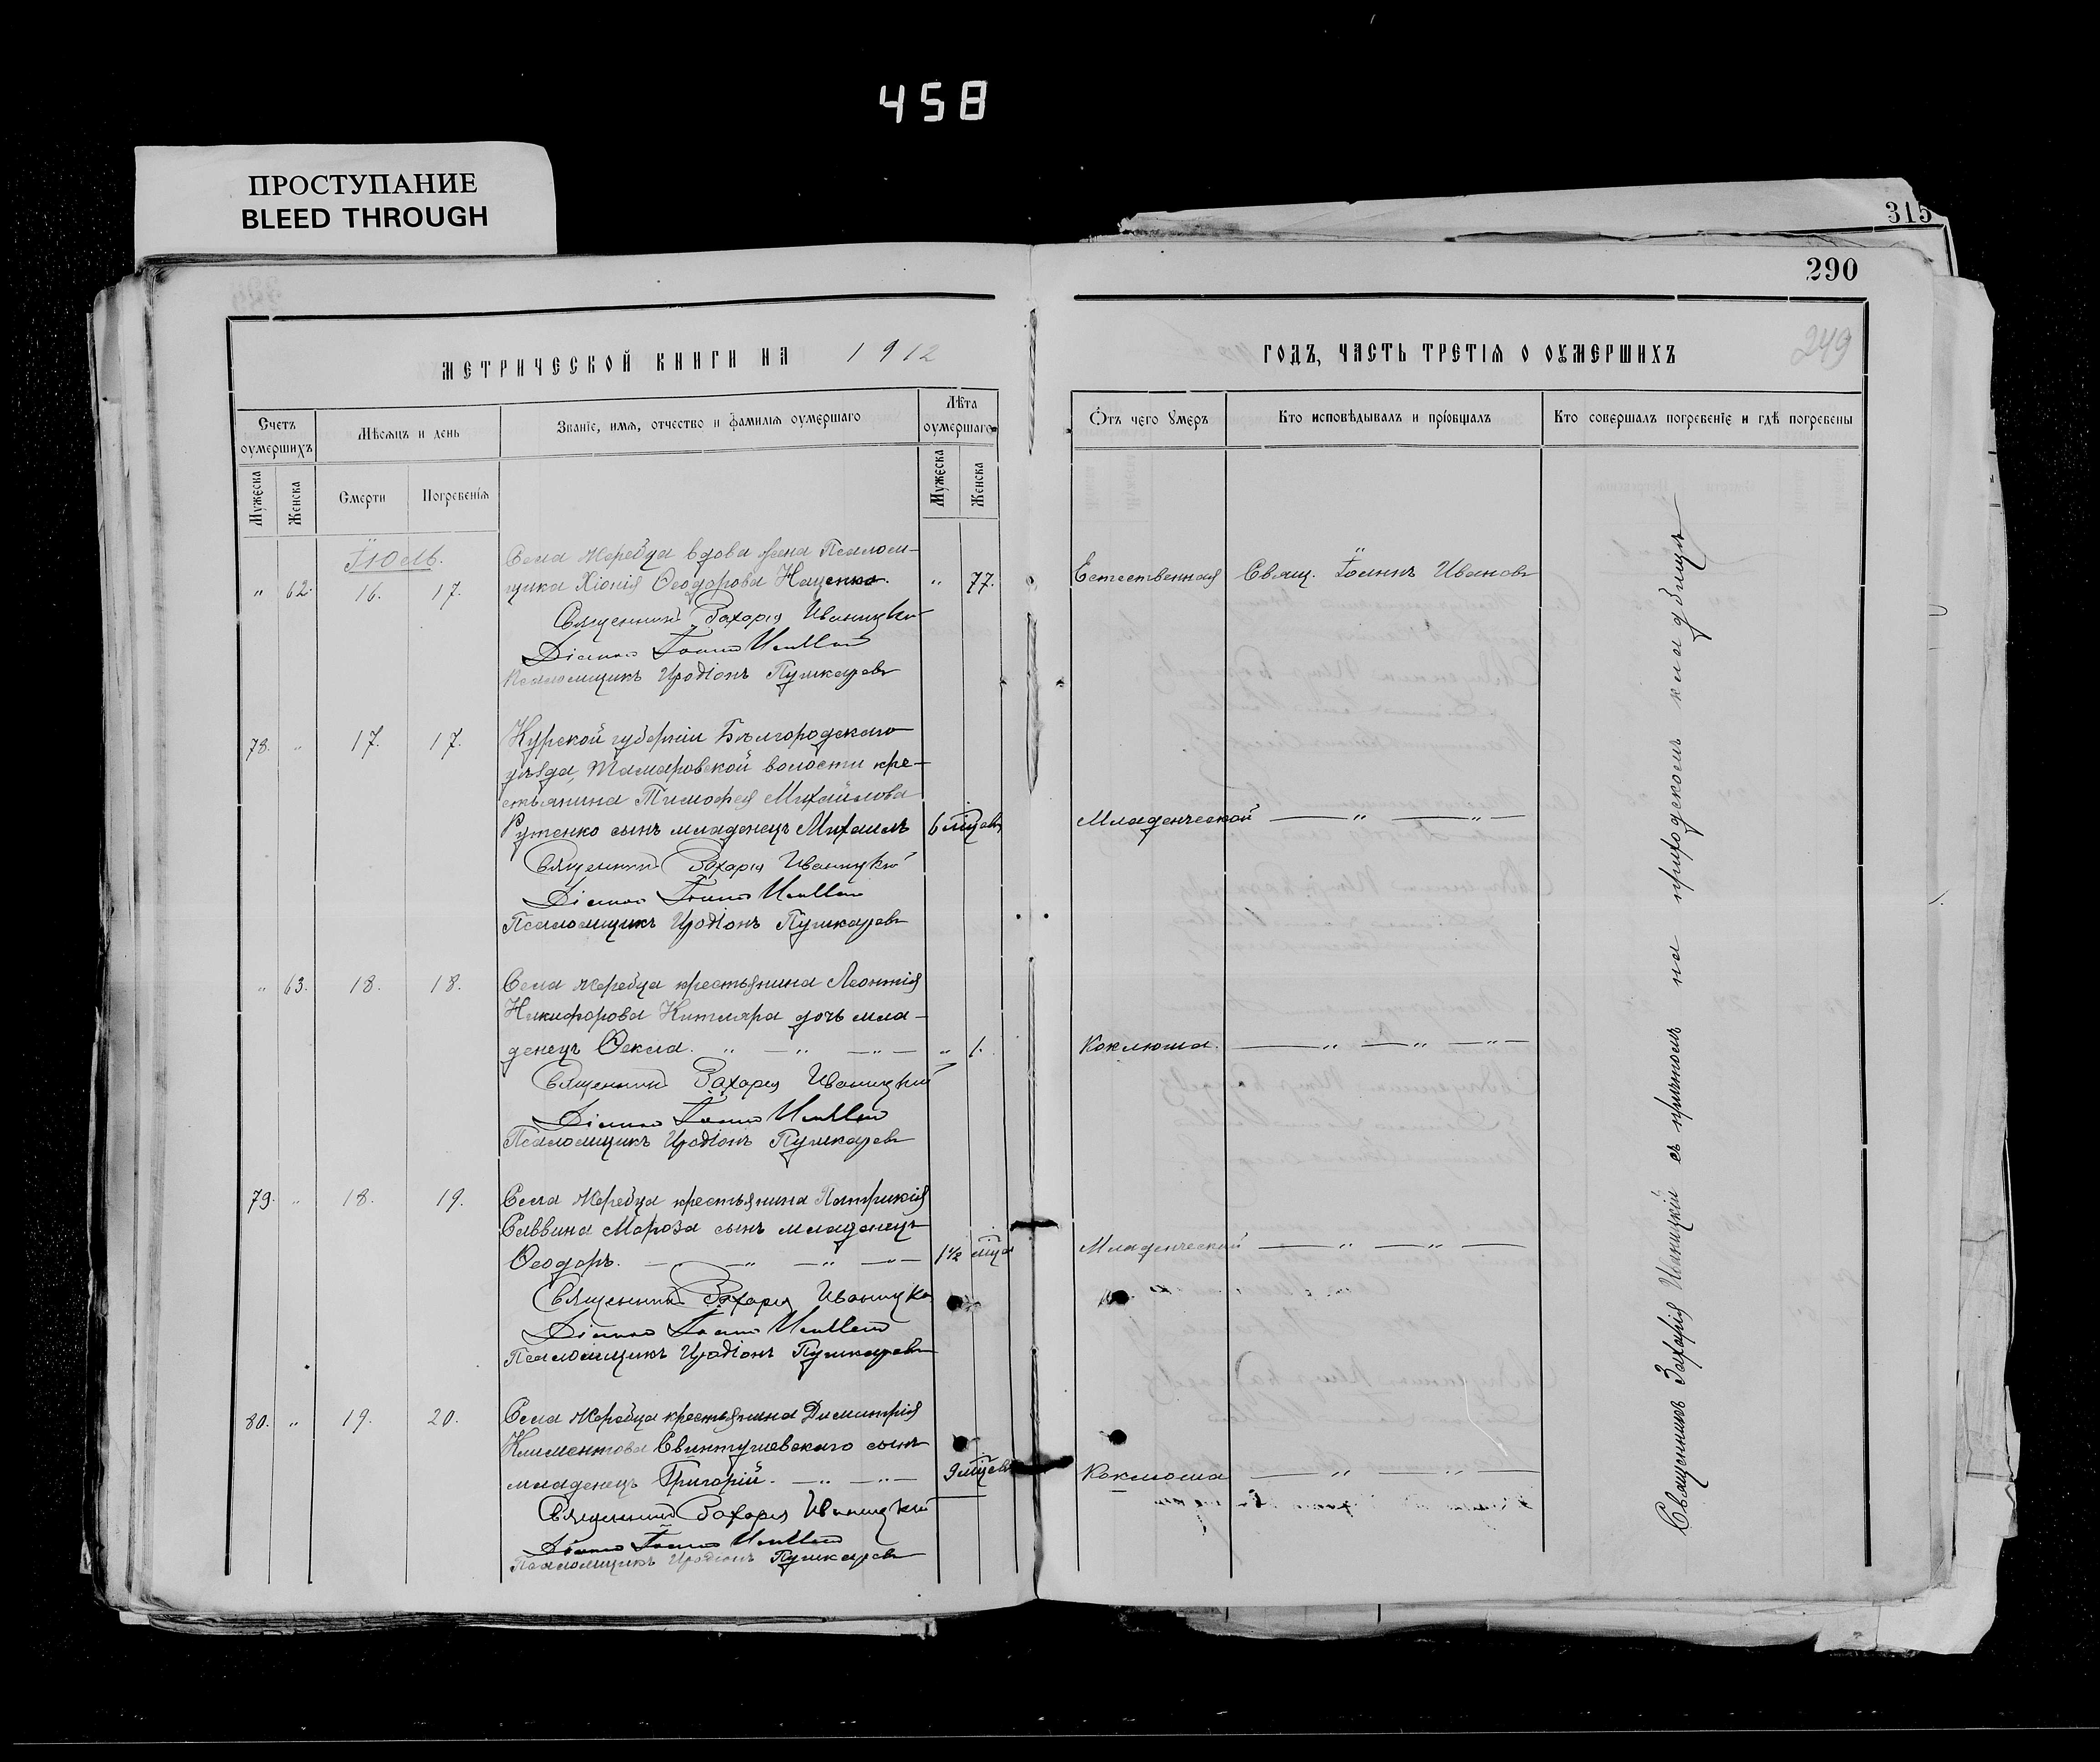 458
ПРОСТУПАНИЕ
BLEED THROUGH
315
290
249
МЕТРИЧЕСКОЙ КНИГИ НА 1912
ГОДЪ, ЧАСТЬ ТРЕТІЯ О ОУМЕРШИХЪ
Счетъ оумершихъ
Мѣсяцъ и день
Званіе, имя, отчество и фамилія оумершаго
Лѣта оумершаго
Отъ чего умеръ
Кто исповѣдывалъ и пріобщалъ
Кто совершалъ погребеніе и гдѣ погребены
Мужеска
Женска
Смерти
Погребенія
Мужеска
Женска
Іюль.
Села Жеребца вдова жена Псалом-
" 62. 16. 17. щика Хіонія Ѳеодорова Наценко. " 77. Естественная Свящ. Іоаннъ Ивановъ
Священникъ Захарія Иваницкій
Діаконъ Іоаннъ
Псаломщикъ Иродіонъ Пушкаревъ
78. " 17. 17. Курской губерніи Бѣлгородскаго
уѣзда, Тамаровской волости кре-
стьянина Тимофея Михайлова
Рутенко сынъ младенецъ Михаилъ 6 мѣсцевъ Младенческой — " — " —
Священникъ Захарія Иваницкій
Діаконъ Іоаннъ
Псаломщикъ Иродіонъ Пушкаревъ
" 63. 18. 18. Села Жеребца крестьянина Леонтія
Никифорова Китляра дочь мла-
денецъ Ѳекла. " — " — " — " 1. Коклюша. — " — " — " —
Священникъ Захарія Иваницкій
Діаконъ Іоаннъ
Псаломщикъ Иродіонъ Пушкаревъ
79. " 18. 19. Села Жеребца крестьянина Патрикія
Саввина Мороза сынъ младенецъ
Ѳеодоръ. — " — " — " — 1½ мѣсца Младенческой — " — " —
Священникъ Захарія Иваницкій
Діаконъ Іоаннъ
Псаломщикъ Иродіонъ Пушкаревъ
80. " 19. 20. Села Жеребца крестьянина Димитрія
Климентова Свинтушевскаго сынъ
младенецъ Григорій. — " — " — 9 мѣсцевъ Коклюша — " — " —
Священникъ Захарія Иваницкій
Діаконъ Іоаннъ
Псаломщикъ Иродіонъ Пушкаревъ
Священникъ Захарія Иваницкій съ причтомъ на приходскомъ кладбищѣ